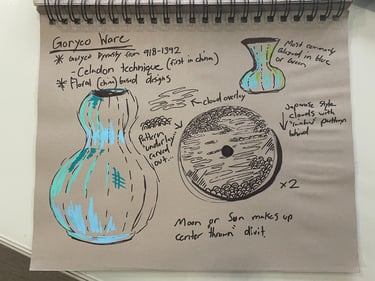 Goryeo Ware
* Goryeo Dynasty Corr 918-1392
- Celadon technique (first in china)
* Floral (china) based designs
Most commonly
glazed in blue
or Green.
← cloud overlay
Pattern
"underlay"
carved
out...
Japanese style
clouds with
pattern
behind
x2
Moon or Sun makes up
center "thrown" divit.